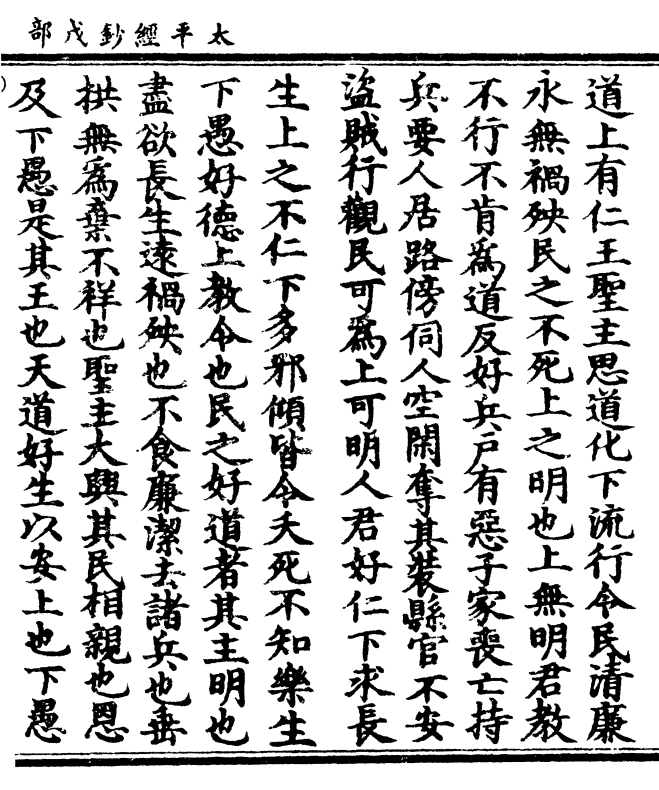 太平經鈔戊部
道上有仁王聖主思道化下流行令民清廉
永無禍殃民之不死上之明也上無明君教
不行不肯爲道反好兵戶有惡子家喪亡持
兵要人居路傍伺人空閑奪其裝縣官不安
盜賊行觀民可爲上可明人君好仁下求長
生上之不仁下多邪傾皆令夭死不知樂生
下愚好德上教令也民之好道者其主明也
盡欲長生遠禍殃也不食廉潔去諸兵也垂
拱無爲棄不祥也聖主大興其民相親也恩
及下愚是其王也天道好生以安上也下愚